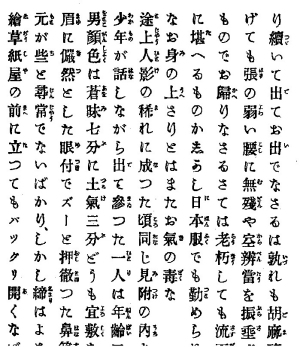 り續いて出てお出でなさるは孰れも胡麻
げても張の弱い腰に無殘や空辨當を振垂
ものでお歸りなさるさては老朽しても流
に堪へるものかしかし日本服でも勤められ
なお身の上さりとはまたお氣の毒な
途上人影の稀れに成つた頃同じ見附の内
少年が話しながら出て參つた一人は年齡
男顔色は蒼味七分に土氣三分どうも宜敷
眉に儼然とした眼付でズーと押徹つた鼻
元が些と尋常でないばかり、しかし締はよ
繪草紙屋の前に立つてもパックリ開くな